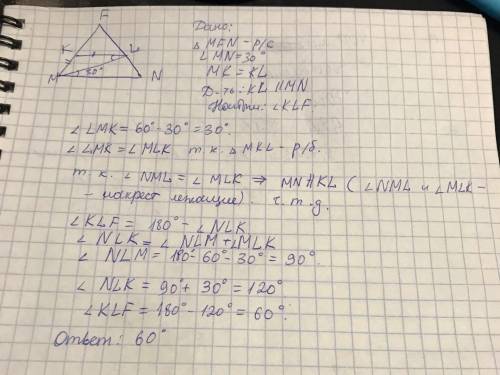 F
K L
M 30° N
Дано:
△ MFN – р/с
∠LMN = 30°
MK = KL
Д-ть: KL || MN
Найти: ∠KLF
∠LMK = 60° - 30° = 30°.
∠LMK = ∠MLK т.к. △MKL – р/б.
т.к. ∠NML = ∠MLK ⇒ MN || KL (∠NML и ∠MLK –
– накрест лежащие). ч.т.д.
∠KLF = 180° - ∠NLK
∠NLK = ∠NLM + ∠MLK
∠NLM = 180° - 60° - 30° = 90°.
∠NLK = 90° + 30° = 120°
∠KLF = 180° - 120° = 60°.
Ответ: 60°